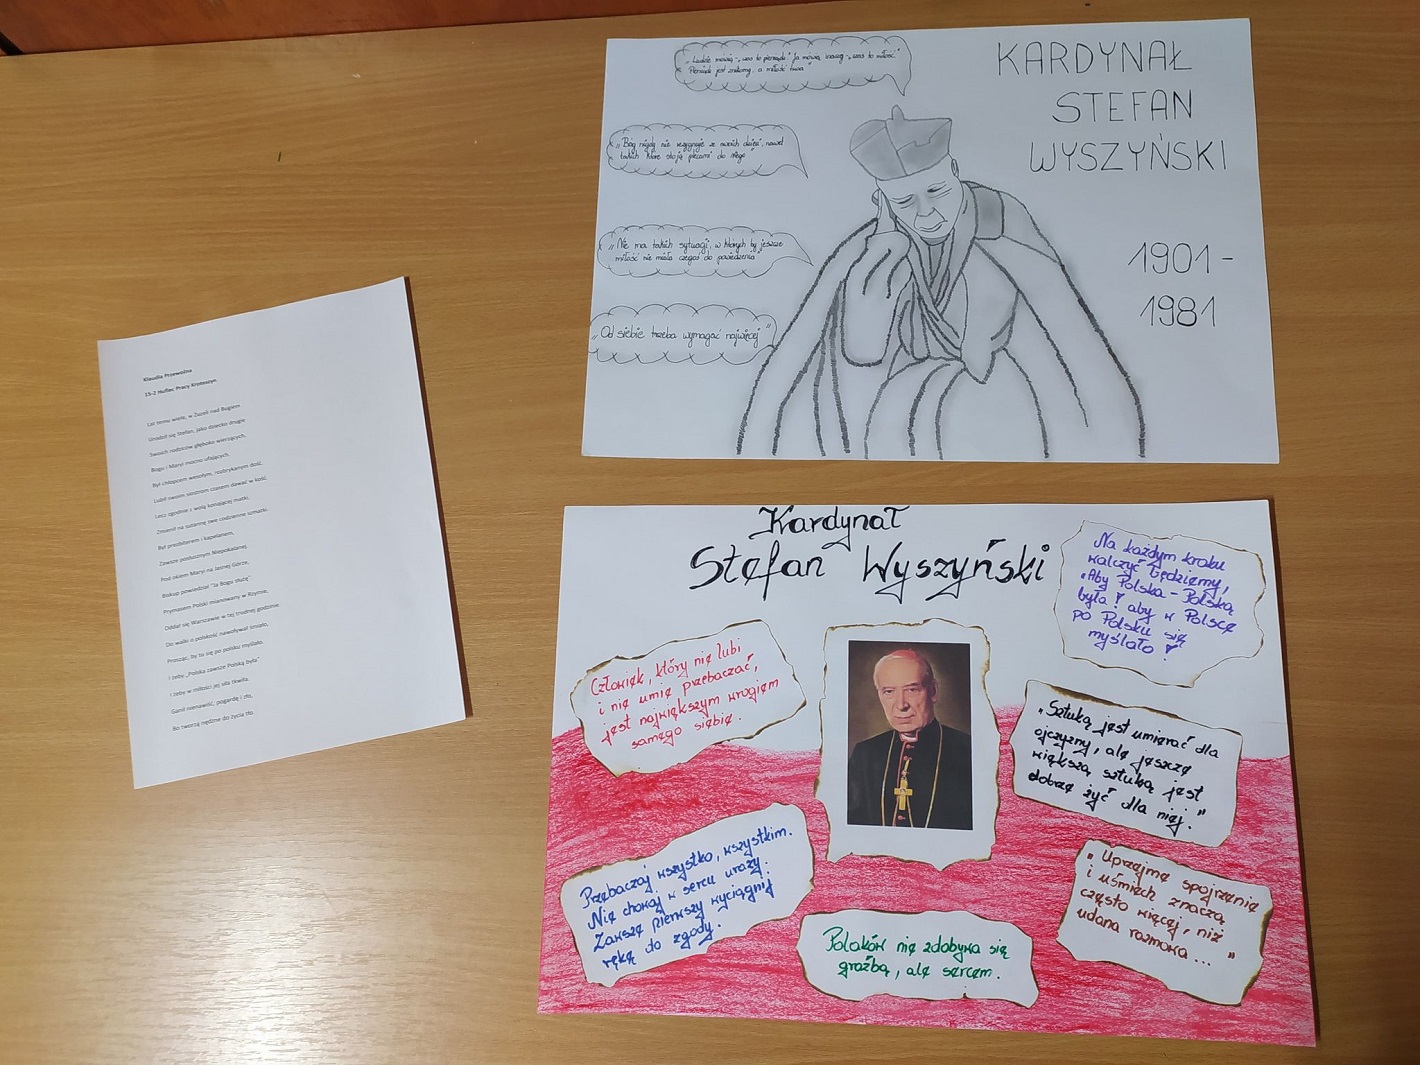 Klaudia Przewoźna
15-2 Hufiec Pracy Krotoszyn
Lat temu wiele, w Zuzeli nad Bugiem
Urodził się Stefan, jako dziecko drugie
Swoich rodziców głęboko wierzących,
Bogu i Maryi mocno ufających.
Był chłopcem wesołym, rozbrykanym dość,
Lubił swoim siostrom czasem dawać w kość.
Lecz zgodnie z wolą konającej matki,
Zmienił na sutannę swe codzienne szmatki.
Był prezbiterem i kapelanem,
Zawsze posłusznym Niepokalanej.
Pod okiem Maryi na Jasnej Górze,
Biskup powiedział "Ja Bogu służę"
Prymasem Polski mianowany w Rzymie,
Oddał się Warszawie w tej trudnej godzinie.
Do walki o polskość nawoływał śmiało,
Prosząc, by tu się po polsku myślało.
I żeby „Polska zawsze Polską była"
I żeby w miłości jej siła tkwiła.
Ganił nienawiść, pogardę i zło,
Bo tworzą nędzne do życia tło.
„Ludzie mówią-„czas to pieniądz" Ja mówię inaczej-„czas to miłość"
Pieniądz jest znikomy, a miłość trwa"
„Bóg nigdy nie rezygnuje ze swoich dzieci, nawet
takich które stoją plecami do niego"
„Nie ma takich sytuacji, w których by jeszcze
miłość nie miała czegoś do powiedzenia"
„Od siebie trzeba wymagać najwięcej"
KARDYNAŁ
STEFAN
WYSZYŃSKI
1901-
1981
Kardynał
Stefan Wyszyński
Na każdym kroku
walczyć będziemy,
„Aby Polska - Polską
była! aby w Polsce
po Polsku się
myślało!
Człowiek, który nie lubi
i nie umie przebaczać,
jest największym wrogiem
samego siebie.
„Sztuką jest umierać dla
ojczyzny, ale jeszcze
większą sztuką jest
dobrze żyć dla niej."
Przebaczaj wszystko, wszystkim.
Nie chowaj w sercu urazy.
Zawsze pierwszy wyciągnij
rękę do zgody.
Polaków nie zdobywa się
groźbą, ale sercem.
„Uprzejme spojrzenie
i uśmiech znaczą
często więcej, niż
udana rozmowa..."